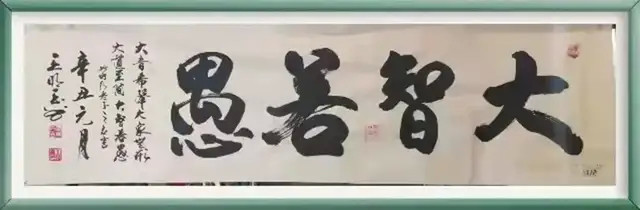 大智若愚
大音希聲大象無形
大道至簡大智若愚
辛丑元月